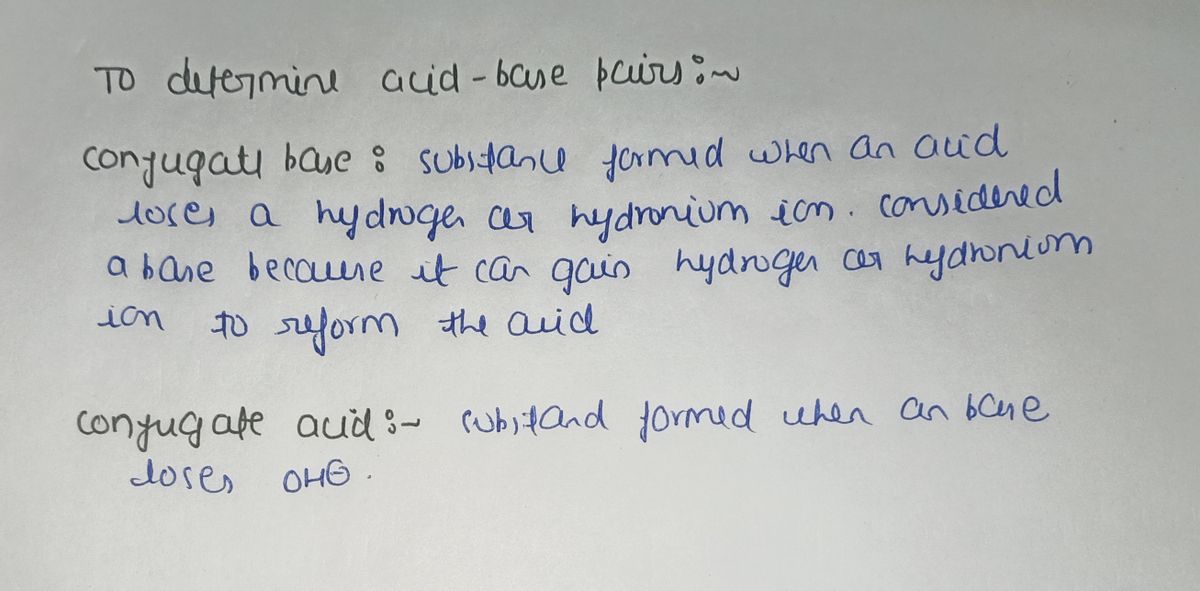 To determine acid-base pairs:~
conjugate base : substance formed when an acid
loses a hydrogen or hydronium ion. considered
a base because it can gain hydrogen or hydronium
ion to reform the acid
conjugate acid:~ substand formed when an base
loses OH⊖.